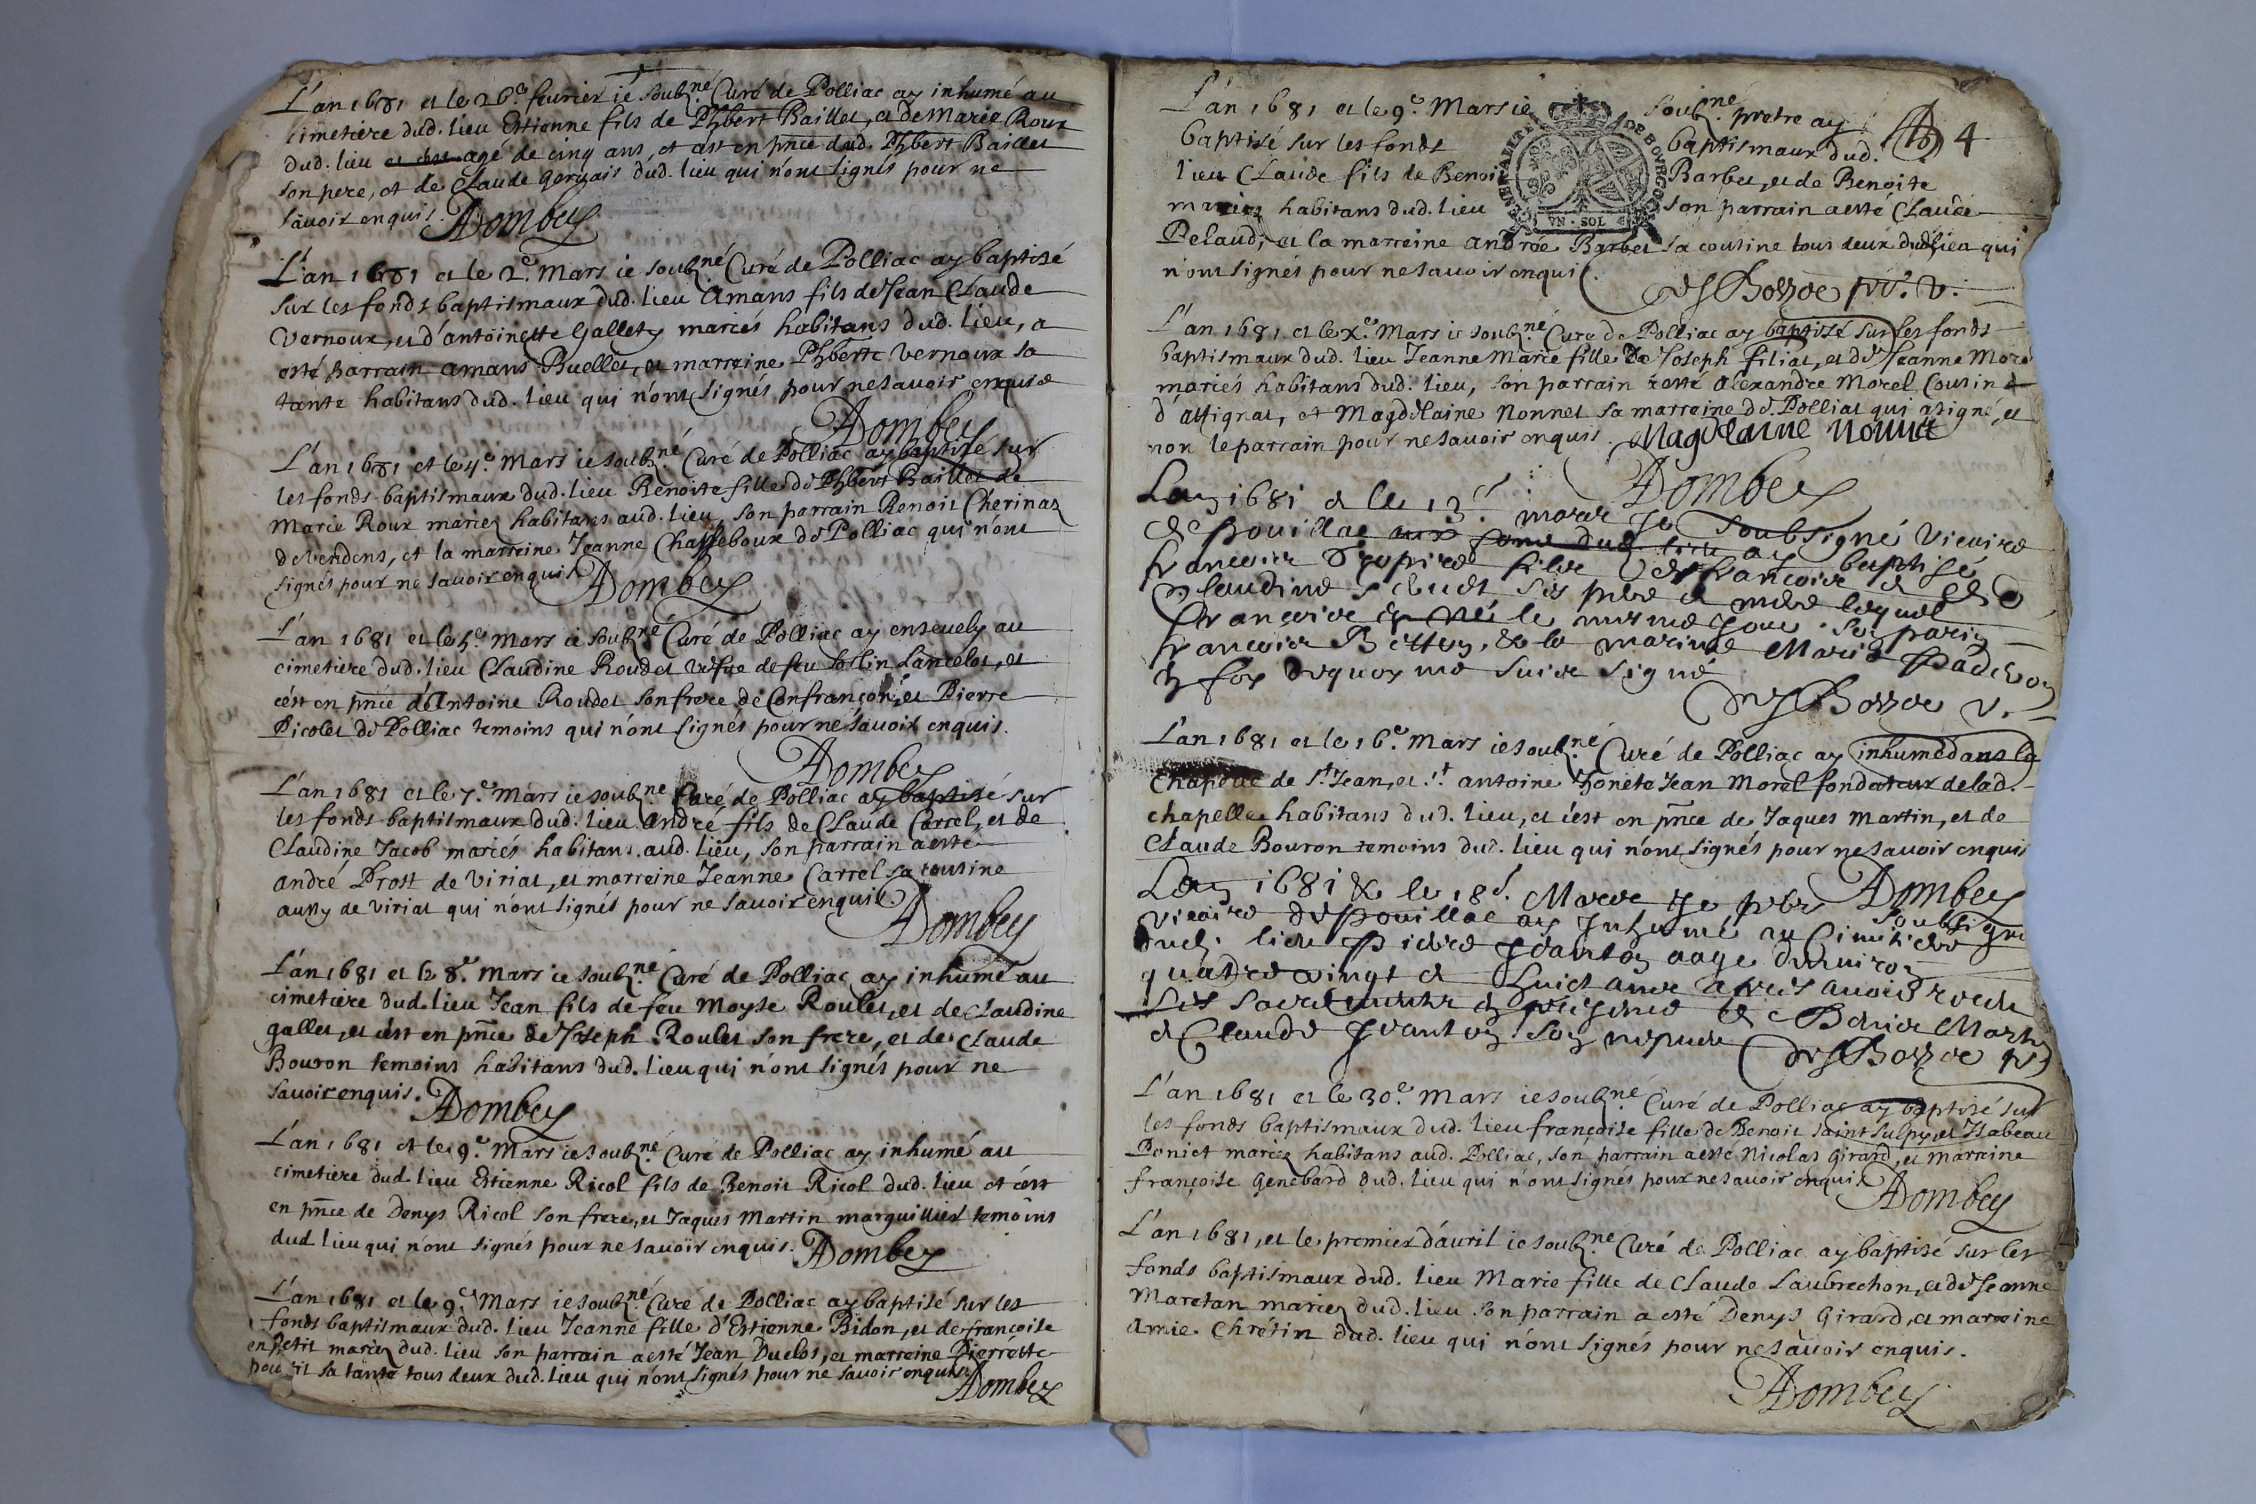 L'an 1681 et le 26.e feurier ie soubz.né Curé de Polliac ay inhumé au
cimetiere dud. lieu Estienne fils de Phbert Baillet, et de Marie Roux
dud. lieu et est agé de cinq ans, et c'est en pnce dud. Phbert Baillet
son pere, et de Claude Geruais dud. lieu qui n'ont signés pour ne
sauoir enquis. ADombey
L'an 1681 et le 2.e Mars ie soubz.né Curé de Polliac ay baptisé
sur les fonds baptismaux dud. lieu Amans fils de Jean Claude
Vernoux, et d'antoinette Gallety mariés habitans dud. lieu, a
esté parrain amans Buellet, et marreine Phberte Vernoux sa
tante habitans dud. lieu qui n'ont signés pour ne sauoir enquis
ADombey
L'an 1681 et le 4.e Mars ie soubz.né Curé de Polliac ay baptisé sur
les fonds baptismaux dud. lieu Benoite fille de Phbert Baillet de
Marie Roux mariez habitans aud. lieu, son parrain Benoit Cherinaz
de Vendens, et la marreine Jeanne Chasseboux de Polliac qui n'ont
signés pour ne sauoir enquis ADombey
L'an 1681 et le 5.e Mars ie soubz.né Curé de Polliac ay enseuely au
cimetiere dud. lieu Claudine Roudet vefue de feu Lancelot, et
c'est en pnce d'Antoine Roudet son frere de Confrançon, et Pierre
Picolet de Polliac temoins qui n'ont signés pour ne sauoir enquis.
ADombey
L'an 1681 et le 7.e Mars ie soubz.né Curé de Polliac ay baptisé sur
les fonds baptismaux dud. lieu André fils de Claude Carrel, et de
Claudine Jacob mariés habitans aud. lieu, son parrain a esté
André Prost de Viriat, et marreine Jeanne Carrel sa cousine
aussy de Viriat qui n'ont signés pour ne sauoir enquis.
ADombey
L'an 1681 et le 8.e Mars ie soubz.né Curé de Polliac ay inhumé au
cimetiere dud. lieu Jean fils de feu Moyse Roulet, et de Claudine
gallet, et c'est en pnce de Joseph Roulet son frere, et de Claude
Bouron temoins habitans dud. lieu qui n'ont signés pour ne
sauoir enquis. ADombey
L'an 1681 et le 9.e Mars ie soubz.né Curé de Polliac ay inhumé au
cimetiere dud. lieu Estienne Ricol fils de Benoit Ricol dud. lieu et c'est
en pnce de Denys Ricol son frere, et Jaques Martin marguillier temoins
dud lieu qui n'ont signés pour ne sauoir enquis. ADombey
L'an 1681 et le 9.e Mars ie soubz.né Curé de Polliac ay baptisé sur les
fonds baptismaux dud. lieu Jeanne fille d'Estienne Bidon, et de françoise
en Petit mariez dud. lieu son parrain a esté Jean Duclos, et marreine Pierrette
sa tante tous deux dud. lieu qui n'ont signés pour ne sauoir enquis.
ADombey
L'an 1681 et le 9.e Mars ie soubz.né pretre ay
4
baptisé sur les fonds baptismaux dud.
GENERALITE DE BOVRGOGNE
VN · SOL
lieu Claude fils de Benoit Barbet, et de Benoite
mariez habitans dud. lieu son parrain a esté Claude
Pelaud, et la marreine andrée Barbet sa cousine tous deux dud. lieu qui
n'ont signés pour ne sauoir enquis.
L'an 1681 et le x.e Mars ie soubz.né Curé de Polliac ay baptisé sur les fonds
baptismaux dud. lieu Jeanne Marie fille de Joseph filiat, et de Jeanne More
mariés habitans dud. lieu, son parrain a esté Alexandre Morel Cousin
d'attignat, et Magdelaine Nonnet sa marreine de Polliat qui a signé, et
non le parrain pour ne sauoir enquis. Magdelaine Nonnet
ADombey
Lan 1681 et le 13.e mars Je soubsigné vicaire
de pouillac aux fons dud lieu ay baptisé
francois fils de francois et de
Claudine ses pere et mere lequel
francois est né le mesme jour son parin
francois & la marine Marie
En foy dequoy me suis signé
L'an 1681 et le 16.e Mars ie soubz.né Curé de Polliac ay inhumé dans la
Chapelle de St Jean, et St antoine honete Jean Morel fondateur de lad.
chapelle habitans dud. lieu, et c'est en pnce de Jaques Martin, et de
Claude Bouron temoins dud. lieu qui n'ont signés pour ne sauoir enquis
ADombey
Lan 1681 & le 18.e Mars Je pbre soubsigné
vicaire de pouillac ay Inhumé au Cimitiere
dud. lieu Pierre aage denuiron
quatre vingt et huict ans apres auoir receu
ses sacrements En presence de Martin
et Claude son nepueu
L'an 1681 et le 30.e Mars ie soubz.né Curé de Polliac ay baptisé sur
les fonds baptismaux dud. lieu françoise fille de Benoit Saint Sulpy, et Isabeau
Peniet mariez habitans aud. Polliac, son parrain a esté Nicolas Girard, et marreine
françoise Genebard dud. lieu qui n'ont signés pour ne sauoir enquis
ADombey
L'an 1681, et le premier d'auril ie soubz.né Curé de Polliac ay baptisé sur les
fonds baptismaux dud. lieu Marie fille de Claude Laubrechon, et de Jeanne
Maretan mariez dud. lieu son parrain a esté Denys Girard, et marreine
Amie Chrétin dud. lieu qui n'ont signés pour ne sauoir enquis.
ADombey